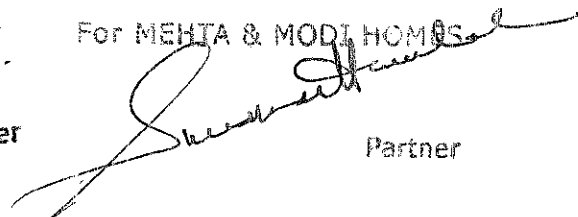 For MEHTA & MODI HOMES
er
Partner